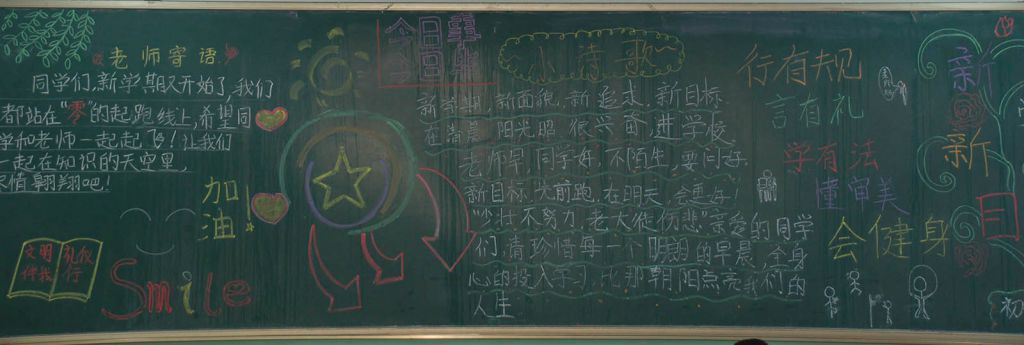 老师寄语
同学们,新学期又开始了,我们
都站在"零"的起跑线上,希望同
学和老师一起起飞!让我们
一起在知识的天空里,
尽情翱翔吧!
加
油!
文明 礼仪
伴我 行
Smile
今日
小诗歌
新学期,新面貌,新追求,新目标
阳光照,很兴奋,进学校
老师早,同学好,不陌生,要问好
新目标,大前跑,在明天,会更好!
"少壮不努力,老大徒伤悲"亲爱的同学
们,请珍惜每一个明朗的早晨,全身
心的投入学习,比那朝阳点亮我们的
人生
行有规
言有礼
学有法
懂审美
会健身
新
新
目
初